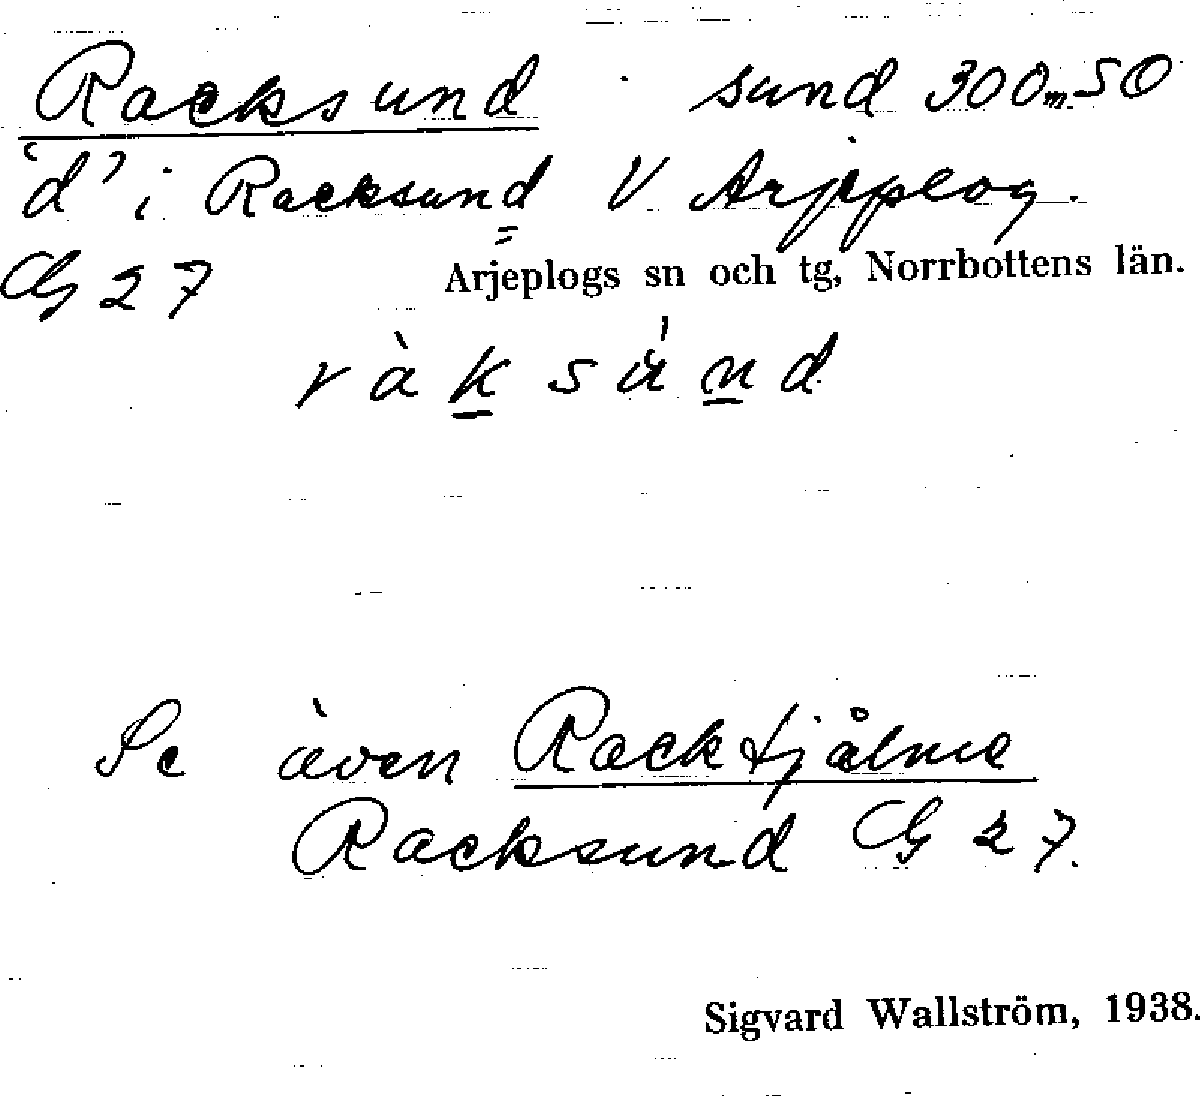 Racksund sund 300m. SO
'd' i Racksund V Arjeplog.
G 27
Arjeplogs sn och tg, Norrbottens län.
ràksúnd
Se även Racktjålme
Racksund G 27.
Sigvard Wallström, 1938.